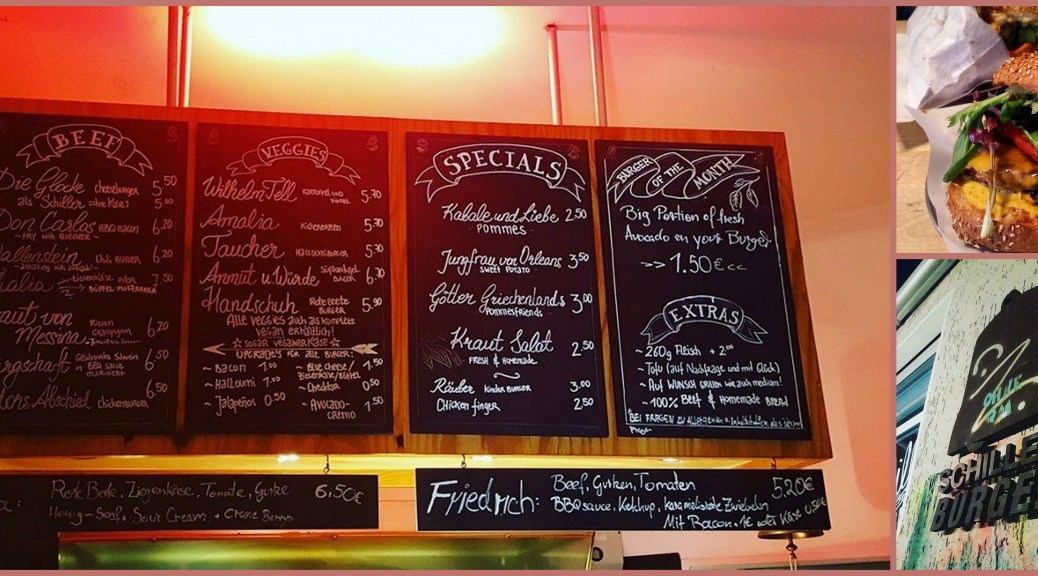 BEEF
Die Glocke cheeseburger 5.50
als Schiller ohne Käse 5.00
Don Carlos BBQ BACON 6.20
Wallenstein Chili BURGER 6.20
7.50
BÜFFEL-MOZZARELLA
Braut von
Messina 6.20
Bürgschaft 6.50
in BBQ sauce
mariniert
Hektors Abschied chickenburger 6.50
VEGGIES
Wilhelm Tell 5.70
Amalia 5.30
Taucher HALLOUMIBURGER 5.30
Anmut u. Würde 6.70
Handschuh Rote Beete BURGER 5.90
Alle VEGGIES auch als komplett
vegan erhältlich!
UPGRADES FÜR ALLE BURGER:
~ BACON 1.00
~ BLUE CHEESE / 1.50
~ Halloumi 1.00
~ Cheddar 0.50
~ Jalapeños 0.50
~ AVOCADO- CREMO 1.50
SPECIALS
Kabale und Liebe 2.50
POMMES
Jungfrau von Orleans 3.50
SWEET POTATO
Götter Griechenlands 3.00
Pommesfriends
Kraut Salat 2.50
FRESH & HOMEMADE
Räuber Kinder BURGER 3.00
Chicken finger 2.50
BURGER OF THE MONTH
Big Portion of fresh
Avocado on your Burger
>> 1.50€ <<
EXTRAS
~ 260g Fleisch + 2.00
~ Tofu (auf Nachfrage und mit Glück)
~ Auf WUNSCH GRILLEN wir auch medium!
~ 100% Beef & Homemade BREAD
BEI FRAGEN ZU ALLERGENEN
Rote Bete, Ziegenkäse, Tomate, Gurke 6,50€
Honig-Senf, Sour Cream
Friedrich: Beef, Gurken, Tomaten 5,20€
BBQ sauce, Ketchup, karamelisierte Zwiebeln
Mit Bacon + 1€ oder Käse 0,50€
SCHILLER
BURGER